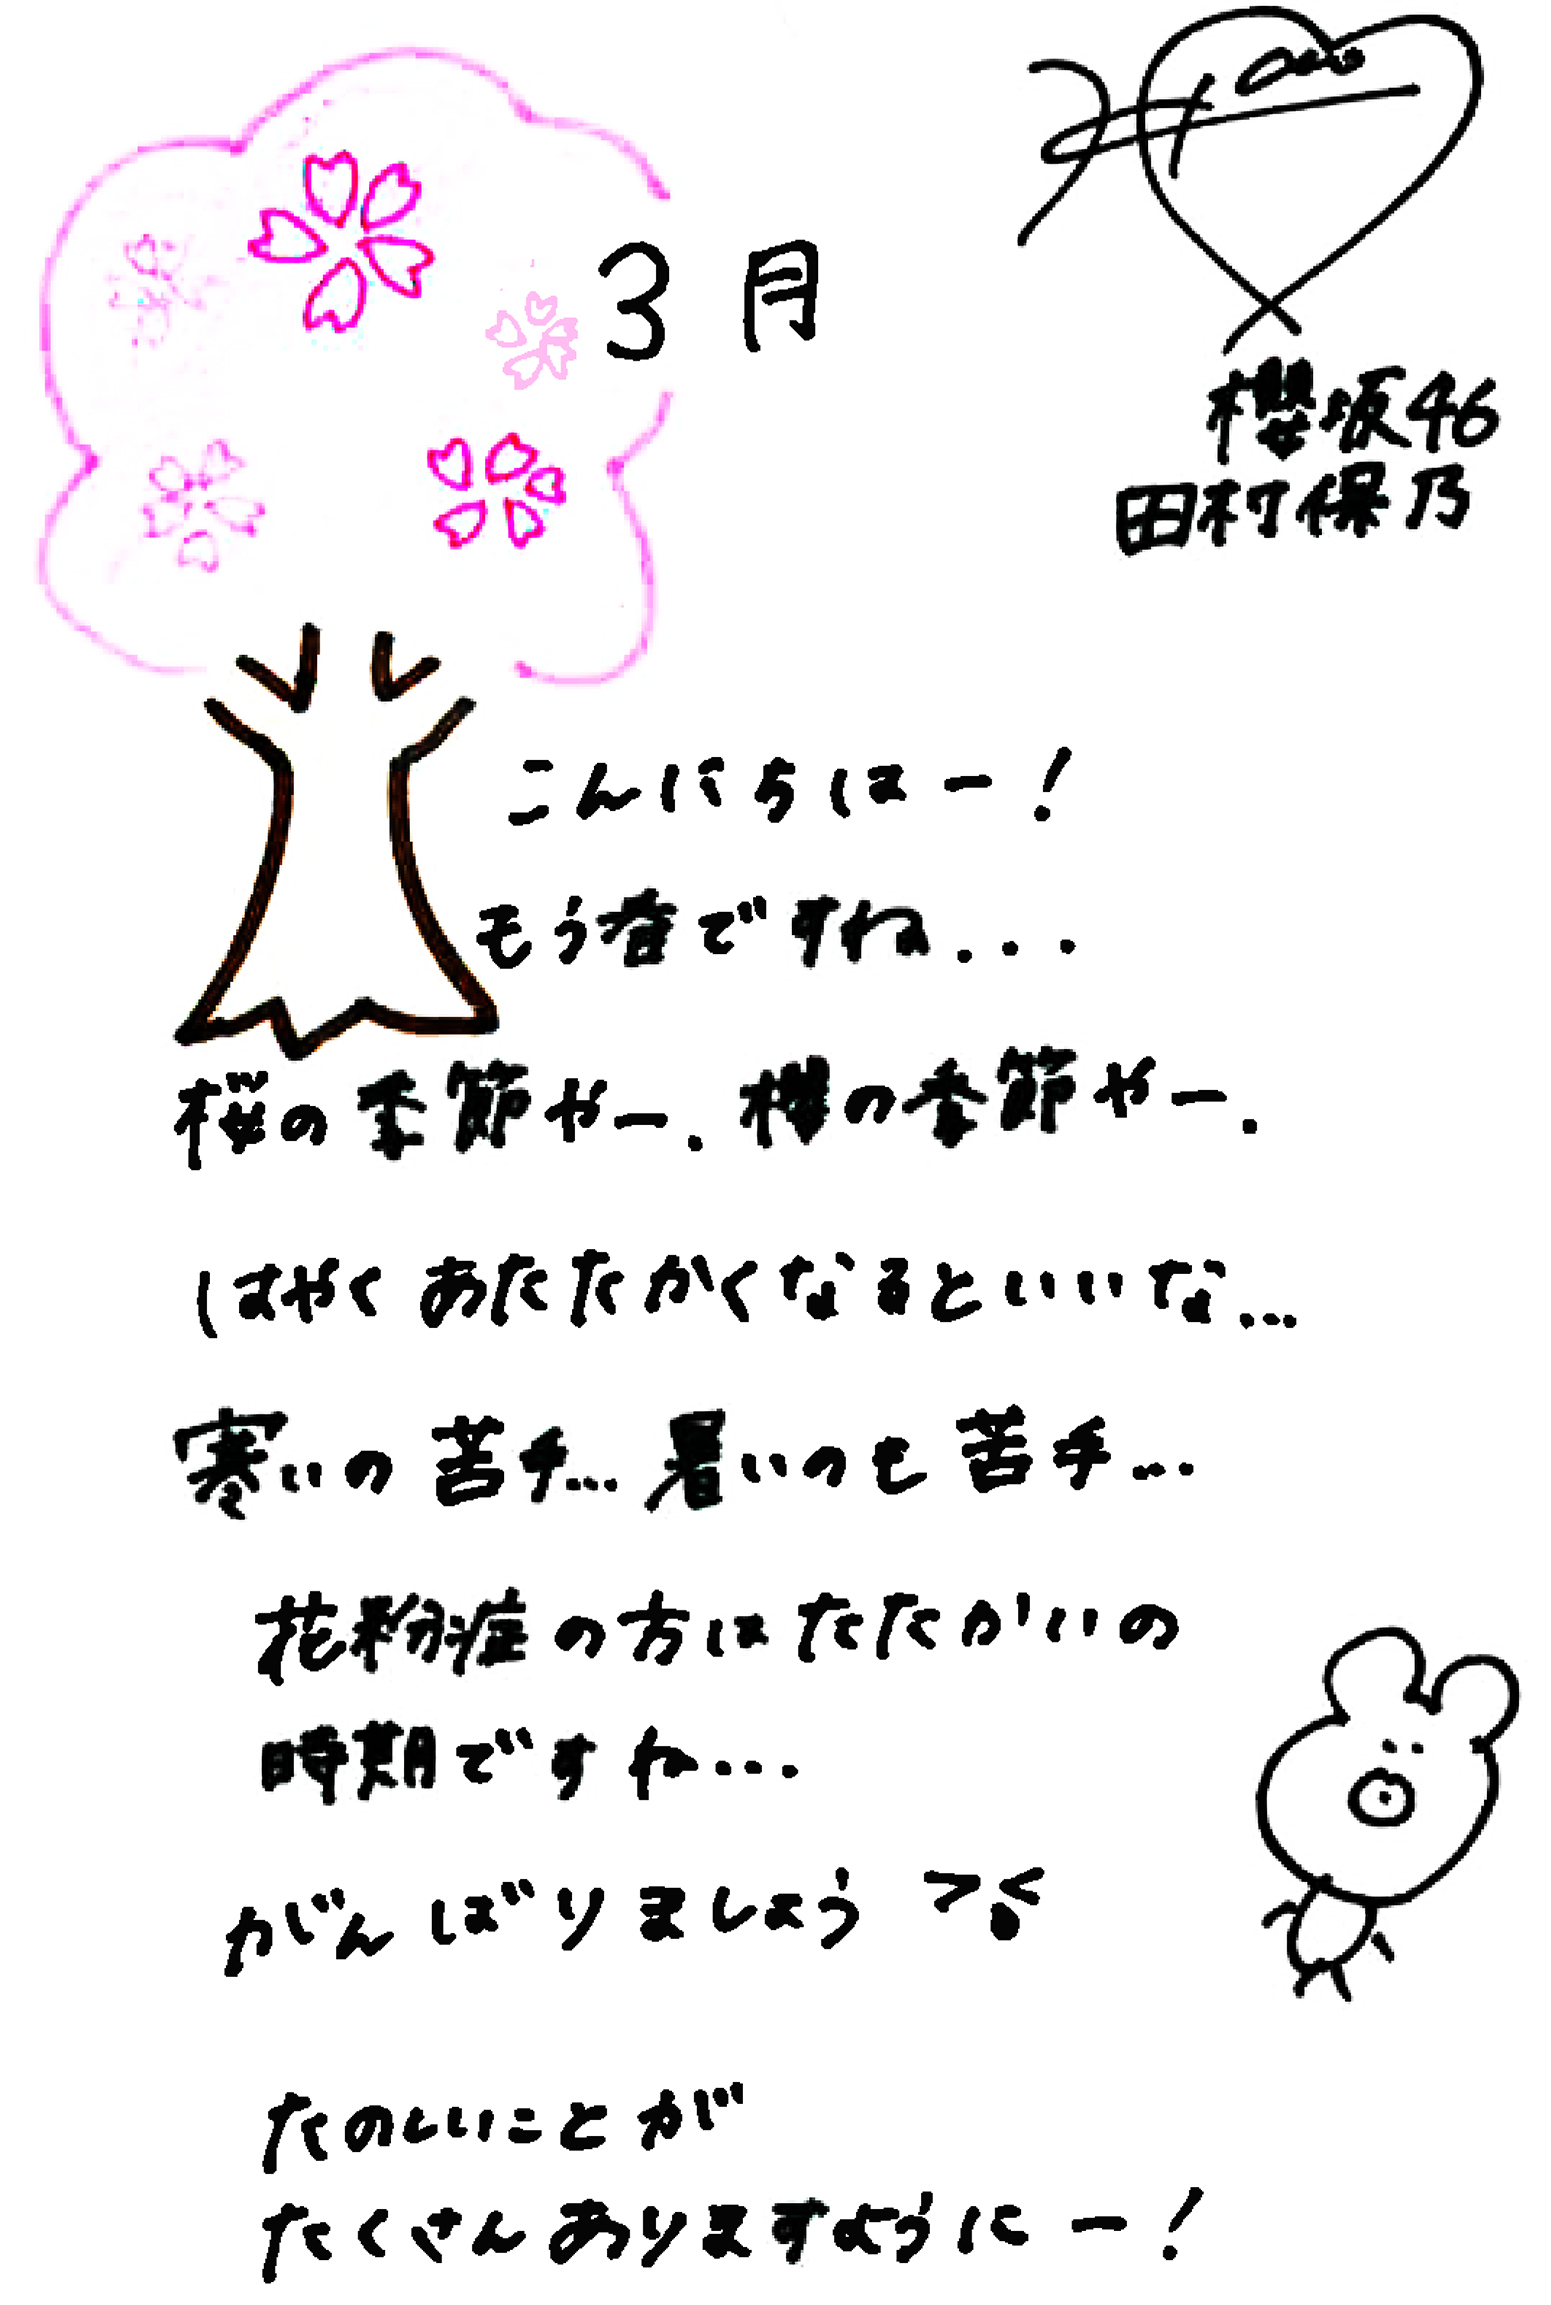 3月
櫻坂46
田村保乃
こんにちはー!
もう春ですね...
桜の季節やー. 櫻の季節やー.
はやくあたたかくなるといいな...
寒いの苦手... 暑いのも苦手...
花粉症の方はたたかいの
時期ですね...
がんばりましょう
たのしいことが
たくさんありますようにー!